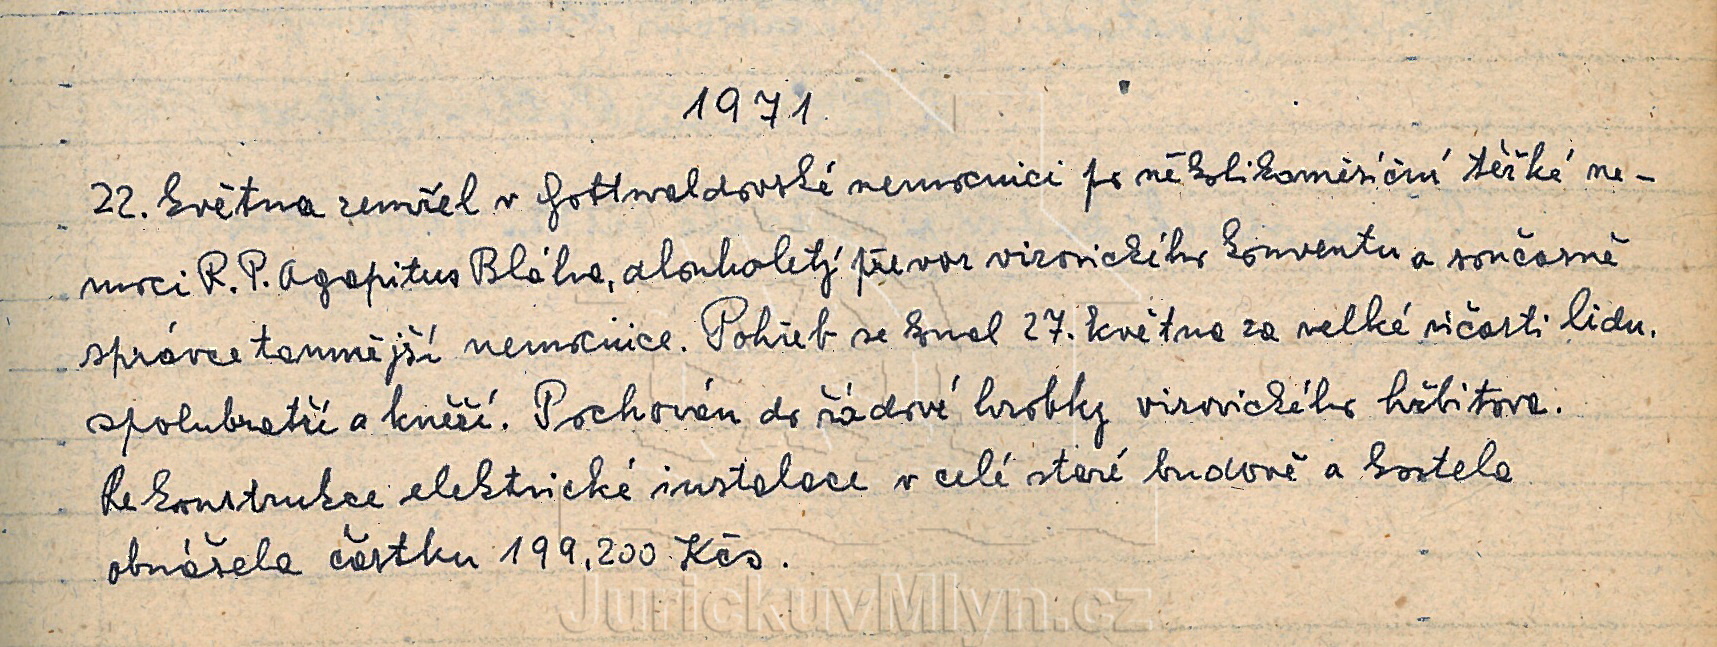 1971.
22. května zemřel v Gottwaldovské nemocnici po několikaměsíční těžké ne-
moci R. P. Agapitus Bláha, dlouholetý převor vizovického konventu a současně
správce tamnější nemocnice. Pohřeb se konal 27. května za velké účasti lidu.
spolubratří a kněží. Pochován do řádové hrobky vizovického hřbitova.
Rekonstrukce elektrické instalace v celé staré budově a kostela
obnášela částku 199.200 Kčs.
JurickuvMlyn.cz